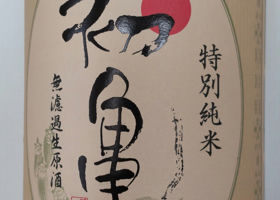 特別純米
初亀
無濾過生原酒